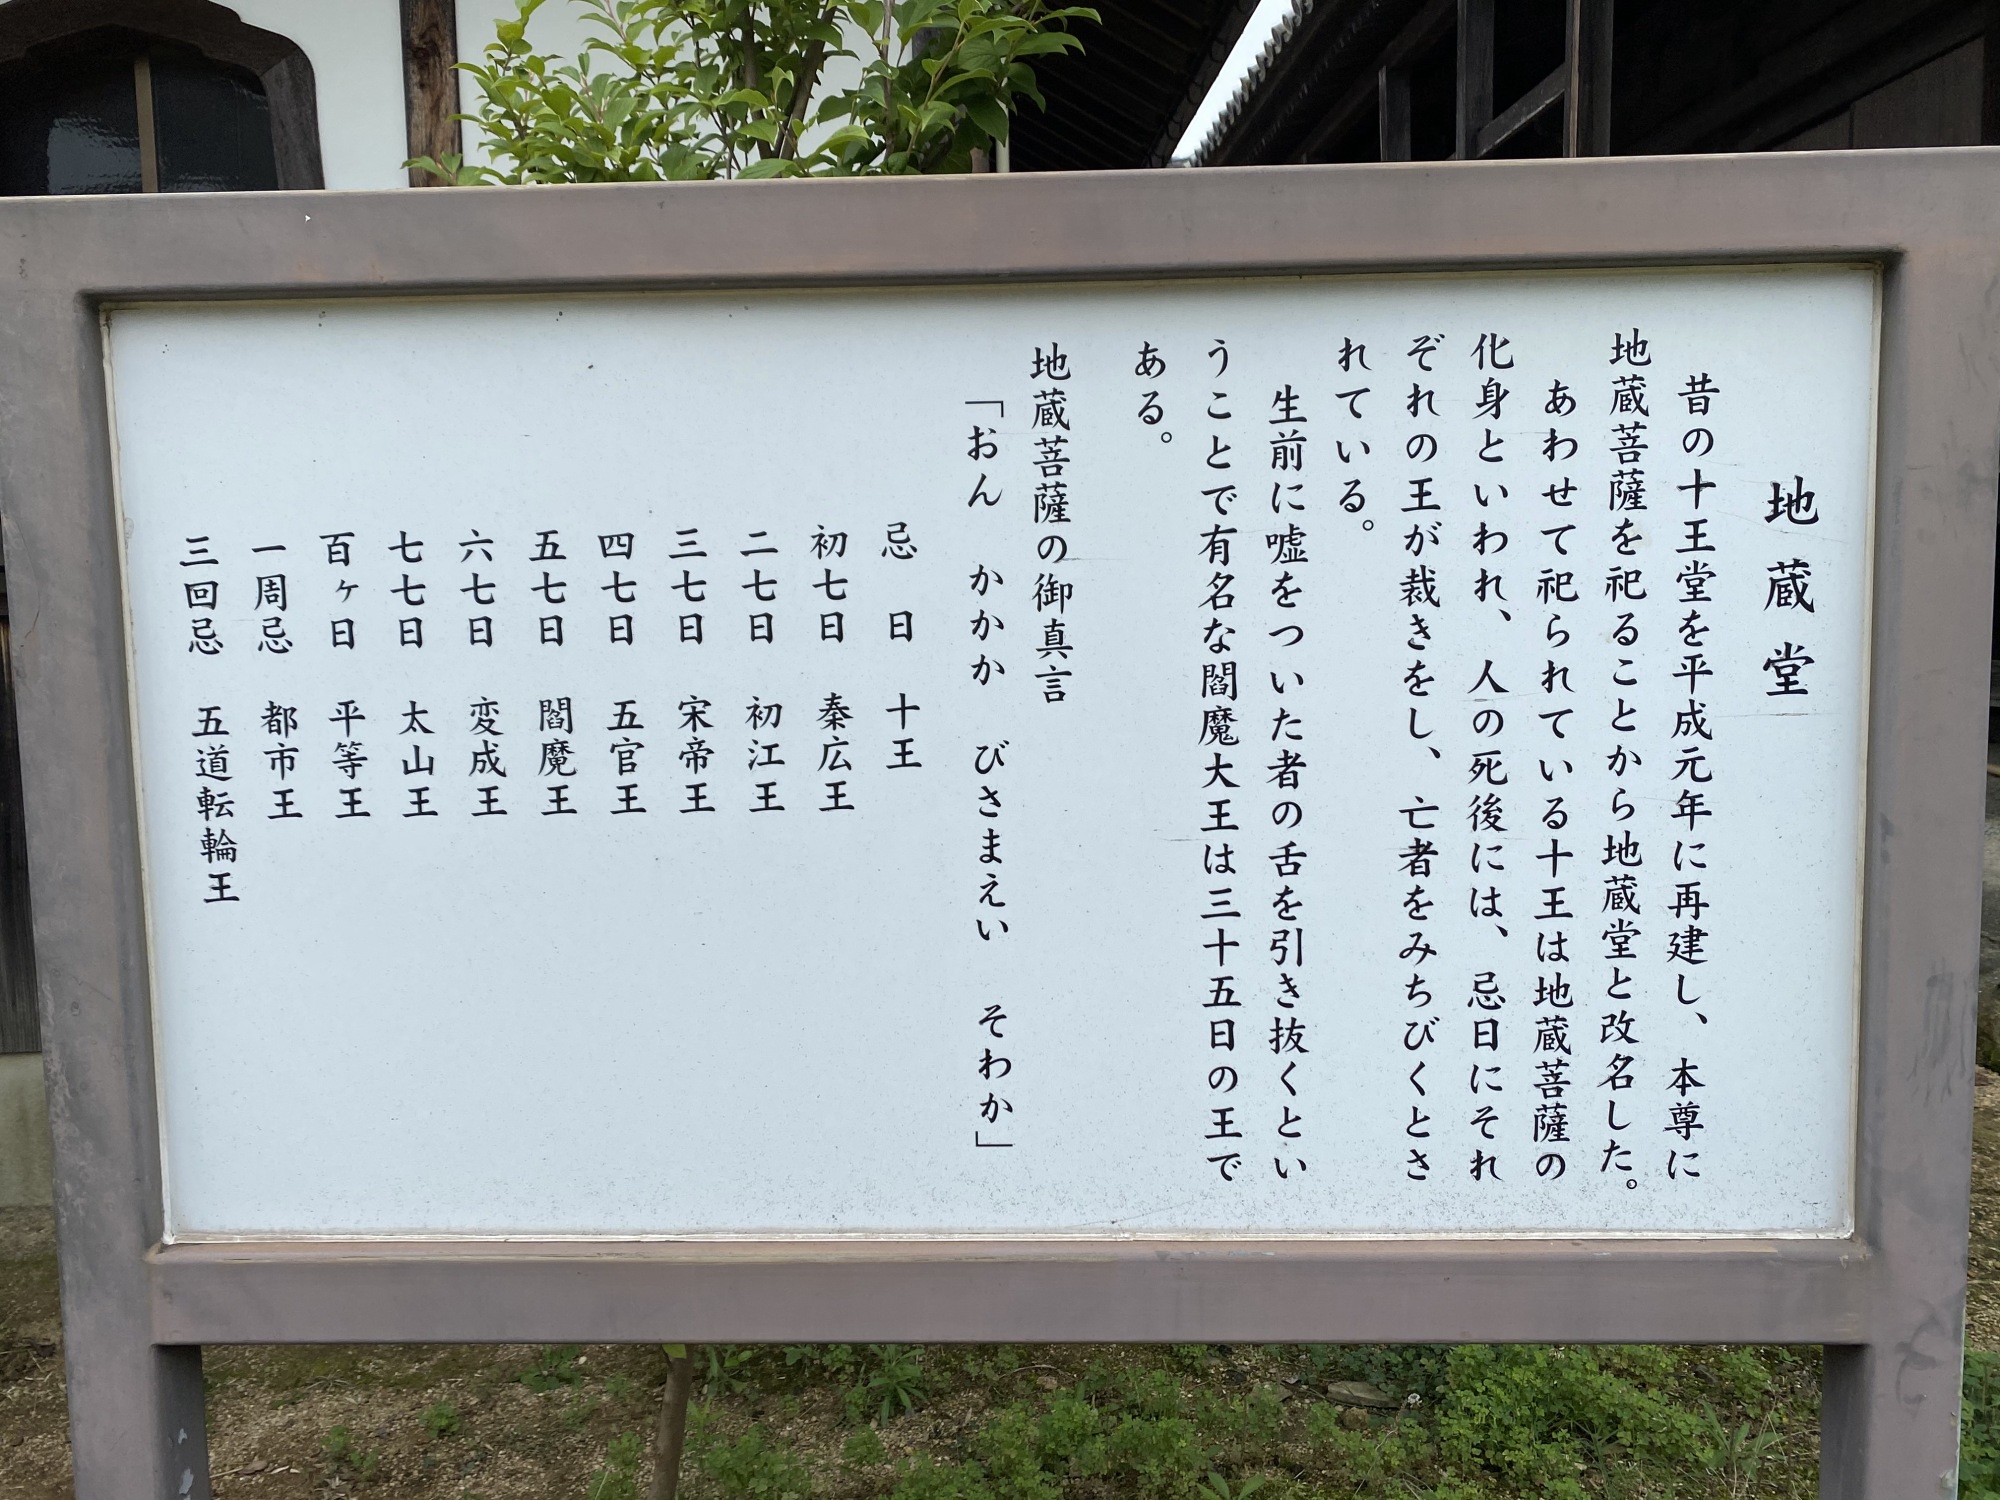 地蔵堂
昔の十王堂を平成元年に再建し、本尊に
地蔵菩薩を祀ることから地蔵堂と改名した。
あわせて祀られている十王は地蔵菩薩の
化身といわれ、人の死後には、忌日にそれ
ぞれの王が裁きをし、亡者をみちびくとさ
れている。
生前に嘘をついた者の舌を引き抜くとい
うことで有名な閻魔大王は三十五日の王で
ある。
地蔵菩薩の御真言
「おん かかか びさまえい そわか」
忌日 十王
初七日 秦広王
二七日 初江王
三七日 宋帝王
四七日 五官王
五七日 閻魔王
六七日 変成王
七七日 太山王
百ヶ日 平等王
一周忌 都市王
三回忌 五道転輪王